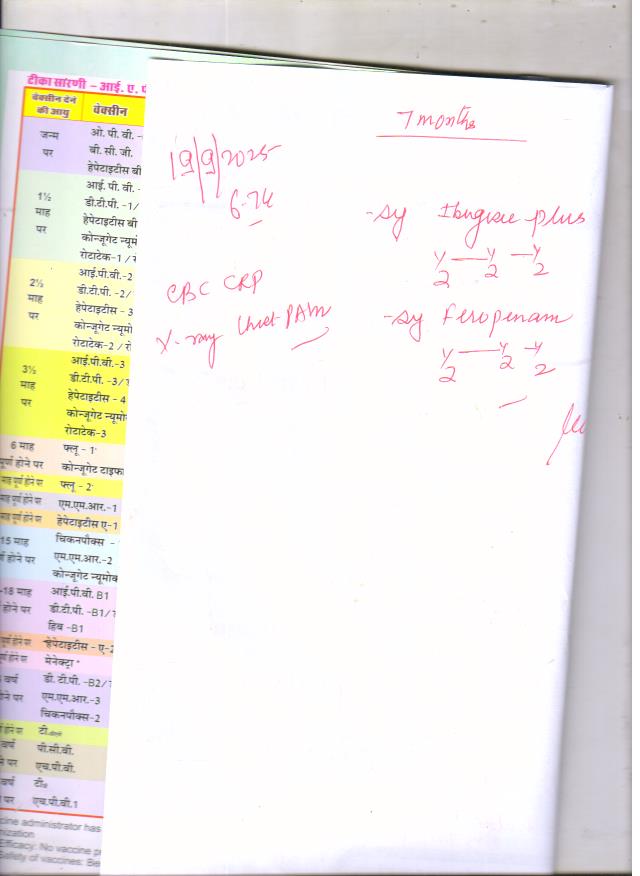 टीका सारणी – आई. ए. पी
वेक्सीन देने
की आयु
वेक्सीन
जन्म
पर
ओ. पी. वी. -
बी. सी. जी.
हेपेटाइटीस बी
1½
माह
पर
आई. पी. वी. -
डी.टी.पी. -1/
हेपेटाइटीस बी
कोन्जूगेट न्यूम
रोटाटेक-1 /
2½
माह
पर
आई.पी.वी.-2
डी.टी.पी. -2/
हेपेटाइटीस - 3
कोन्जूगेट न्यूमो
रोटाटेक-2 /
3½
माह
पर
आई.पी.वी.-3
डी.टी.पी. -3/
हेपेटाइटीस - 4
कोन्जूगेट न्यूमो
रोटाटेक-3
6 माह
पूर्ण होने पर
फ्लू - 1
कोन्जूगेट टाइफा
माह पूर्ण होने पर
फ्लू - 2
माह पूर्ण होने पर
एम.एम.आर.-1
माह पूर्ण होने पर
हेपेटाइटीस ए-1
15 माह
होने पर
चिकनपौक्स -
एम.एम.आर.-2
कोन्जूगेट न्यूमोक
-18 माह
होने पर
आई.पी.वी. B1
डी.टी.पी. -B1/
हिब -B1
पूर्ण होने पर
हेपेटाइटीस - ए-2
पूर्ण होने पर
मेनेक्ट्रा
वर्ष
होने पर
डी. टी.पी. -B2/
एम.एम.आर.-3
चिकनपौक्स-2
होने पर
टी.
वर्ष
पर
पी.सी.वी.
एच.पी.वी.
वर्ष
पर
टी
एच.पी.वी.1
cine administrator has
nization
Efficacy: No vaccine p
Safety of vaccines: Be
7 months
19/9/2025
6.74
CBC CRP
X-ray Chest-PA
-Sy Ibugesic plus
½ — ½ — ½
-Sy Feropenam
½ — ½ — ½